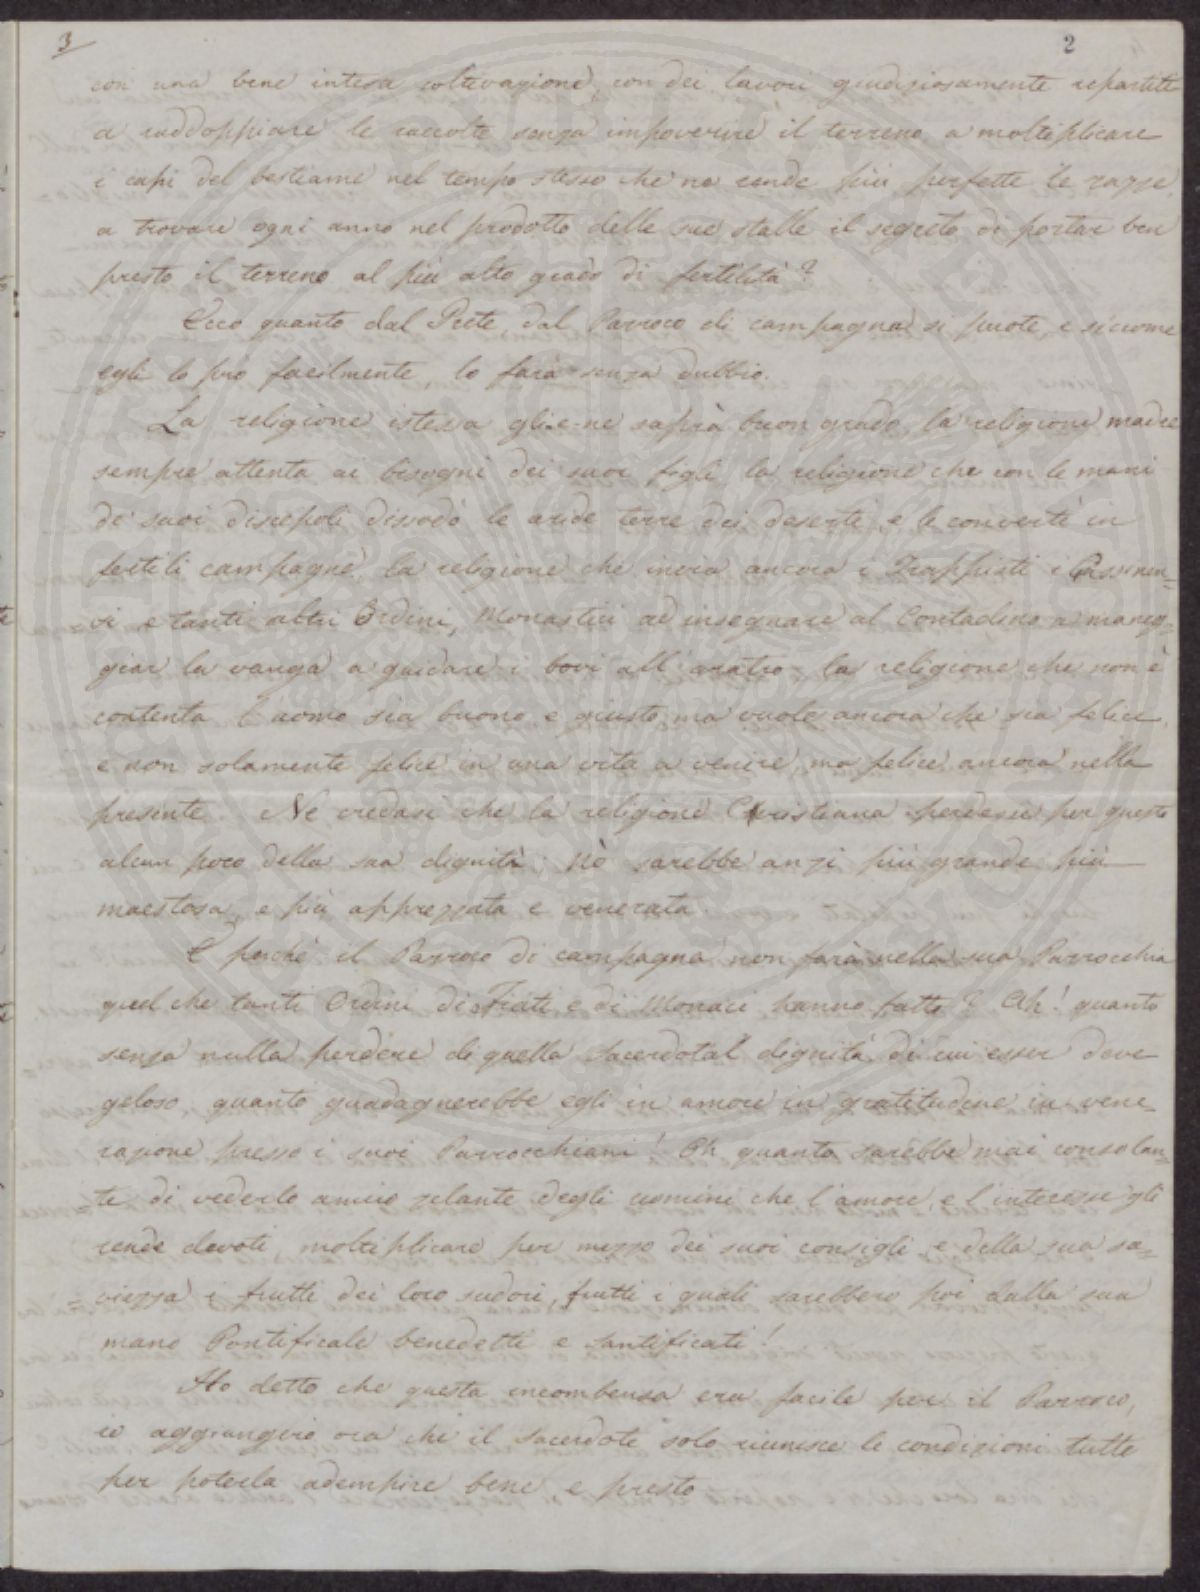 3 2
con una bene intesa coltivazione, con dei lavori giudiziosamente repartiti
a raddoppiare le raccolte senza impoverire il terreno, a moltiplicare
i capi del bestiame nel tempo stesso che ne rende più perfette le razze,
a trovare ogni anno nel prodotto delle sue stalle il segreto di portar ben
presto il terreno al più alto grado di fertilità?
Ecco quanto dal Prete, dal Parroco di campagna si puote, e siccome
egli lo può facilmente, lo farà senza dubbio.
La religione istessa glie-ne saprà buon grado, la religione madre
sempre attenta ai bisogni dei suoi figli la religione che con le mani
de' suoi discepoli dissodò le aride terre dei deserti, e le convertì in
fertili campagne, la religione che invia ancora i Trappisti i Cassinen-
si e tanti altri Ordini Monastici ad insegnare al Contadino a maneg-
giar la vanga a guidare i bovi all'aratro, la religione che non è
contenta l'uomo sia buono e giusto, ma vuole ancora che sia felice,
e non solamente felice in una vita a venire, ma felice ancora nella
presente. Ne credasi che la religione Cristiana perdesse per questo
alcun poco della sua dignità; nò sarebbe anzi più grande più
maestosa, e più apprezzata e venerata.
E perchè il Parroco di campagna non farà nella sua Parrocchia
quel che tanti Ordini di Frati e di Monaci hanno fatto? Ah! quanto
senza nulla perdere di quella sacerdotal dignità di cui esser deve
geloso, quanto guadagnerebbe egli in amore in gratitudine in vene-
razione presso i suoi Parrocchiani! Oh quanto sarebbe mai consolan-
te di vederlo amico zelante degli uomini che l'amore, e l'interesse gli
rende devoti, moltiplicare per mezzo dei suoi consigli, e della sua sa-
viezza i frutti dei loro sudori, frutti i quali sarebbero poi dalla sua
mano Pontificale benedetti e santificati!
Ho detto che questa incombensa era facile per il Parroco,
io aggiungerò ora che il sacerdote solo riunisce le condizioni tutte
per poterla adempire bene e presto